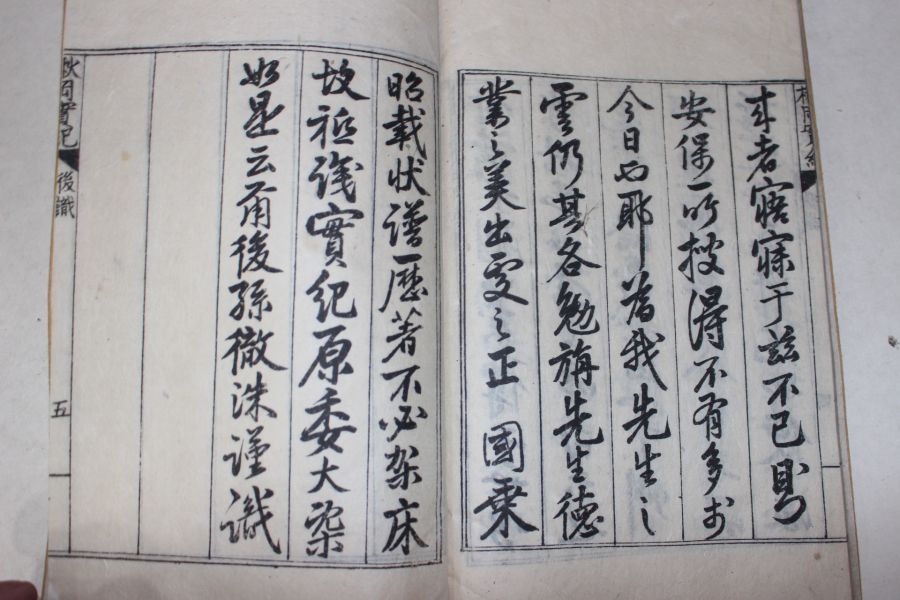 者寤寐于玆不已則
安保一所搜得不有多於
今日也耶蓋我先生之
雲仍其各勉旃先生德
業之美出處之正 國乘
昭載狀譜歷著不必架床
故祗識實紀原委大槩
如是云爾後孫徹洙謹識
岡實紀
後識
五